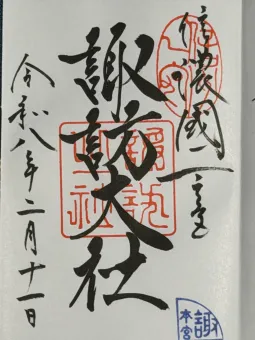 信濃國一之宮
諏訪大社
令和八年二月十一日
諏訪大社
諏
本宮